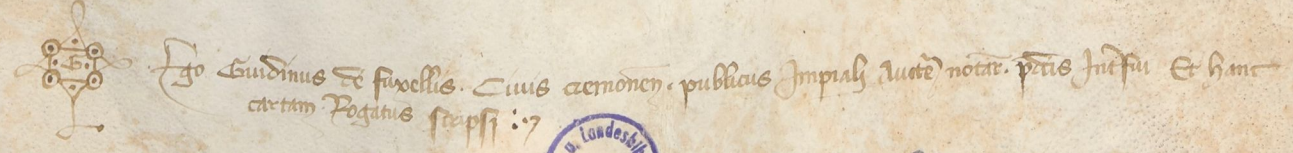 G
Ego Guidinus de fuxellis. Civis cremonen. publicus Imp̄iali Auct̄e notar̄. p̄dc̄is Int̄fui Et hanc
cartam Rogatus scripsi
u. Landesbib